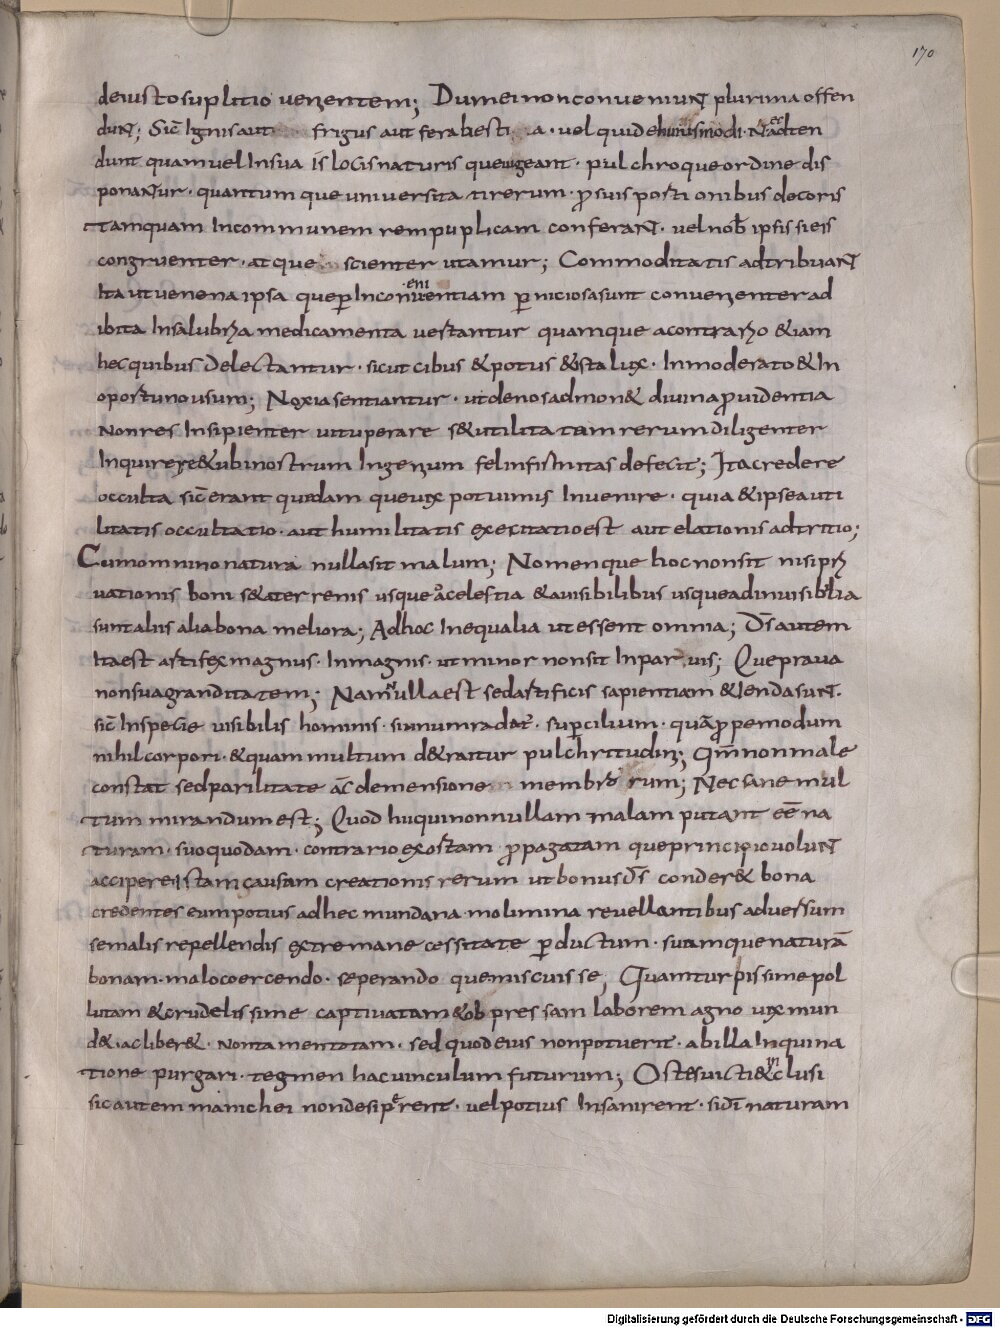 170
deiusto suplitio uenientem; Dum ei non conueniunt plurima offen
dunt; Sic Ignis aut frigus aut fera besti a · uel quid huiusmodi · Nec adten
dunt quam uel In sua is locis naturis queuigeant · pulchroque ordine dis
ponantur · quantum que uniuersita ti rerum · ꝓ suis porti onibus decoris
tamquam Incommunem rempuplicam conferant · uel nob̄ ipsis si eis
congruenter · atque scienter utamur; Commoditatis adtribuant
Ita ut uenena ipsa que ꝑ Inconuenientiam ꝑniciosa sunt conuenienter ad
ibita In salubria medicamenta uertantur quamque acontrario &iam
hec quibus delectantur · sicut cibus & potus & ista lux · Inmoderato & In
oportuno usum; Noxia sentiantur · unde nos admon& diuina ꝓuidentia
non res Insipienter uituperare s& utilitatem rerum diligenter
Inquirere & ubi nostrum Ingenium fel infirmitas defecit; Ita credere
occulta sic̄ erant quædam que uix potuimus Inuenire · quia & ipse a uti
litatis occultatio · aut humilitatis exercitatio est aut elationis adtritio;
Cum omnino natura nulla sit malum; Nomenque hoc non sit nisi pri
uationis boni s& a terrenis usque ad celestia & a uisibilibus usque ad inuisibilia
sunt aliis alia bona meliora; Ad hoc Inequalia ut essent omnia; Ds̄ autem
Ita est artifex magnus · In magnis · ut minor non sit In par uis; Que praua
non sua granditatem; Nam nulla est sed artificis sapientiam &lenda sunt ·
sic̄ In specie uisibilis hominis · si unum radat · suꝑcilium · quā ꝓpemodum
nihil corpori · & quam multum d&raitur pulchritudini; Qm̄ non male
constat sed parilitate ac̄ demensione membro rum; Nec sane mul
tum mirandum est; Quod hi qui non nullam malam putant eē na
turam · suo quodam · contrario exortam ꝓpagatam que principio uolunt
accipere istam causam creationis rerum ut bonus ds̄ conder& bona
credentes eum potius ad hec mundana molimina reuellantibus aduersum
se malis repellendis extrema necessitate ꝑductum · suam que naturā
bonam · malo coercendo · seperando que miscuisse; Quam turpissime pol
lutam & crudelissime captiuatam & obpressam labore magno uix mun
d& · ac liber& · non tamen totam · sed quod eius non potuerit · ab illa Inquina
tione purgari · tegmen hac uinculum futurum; Ostes uicti & inclusi
sic autem manichei non desiperent · uel potius Insanirent · si dī naturam
Digitalisierung gefördert durch die Deutsche Forschungsgemeinschaft - DFG